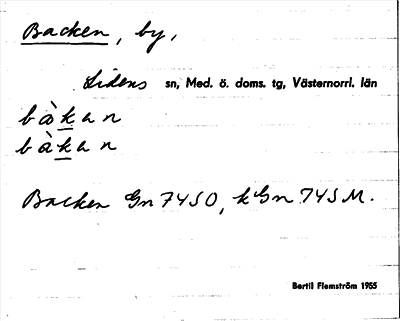 Backen, by,
Lidens sn, Med. ö. doms. tg, Västernorrl. län
bàkan
bàkan
Backen Gn 74 SO, kGn 74 S M.
Bertil Flemström 1955